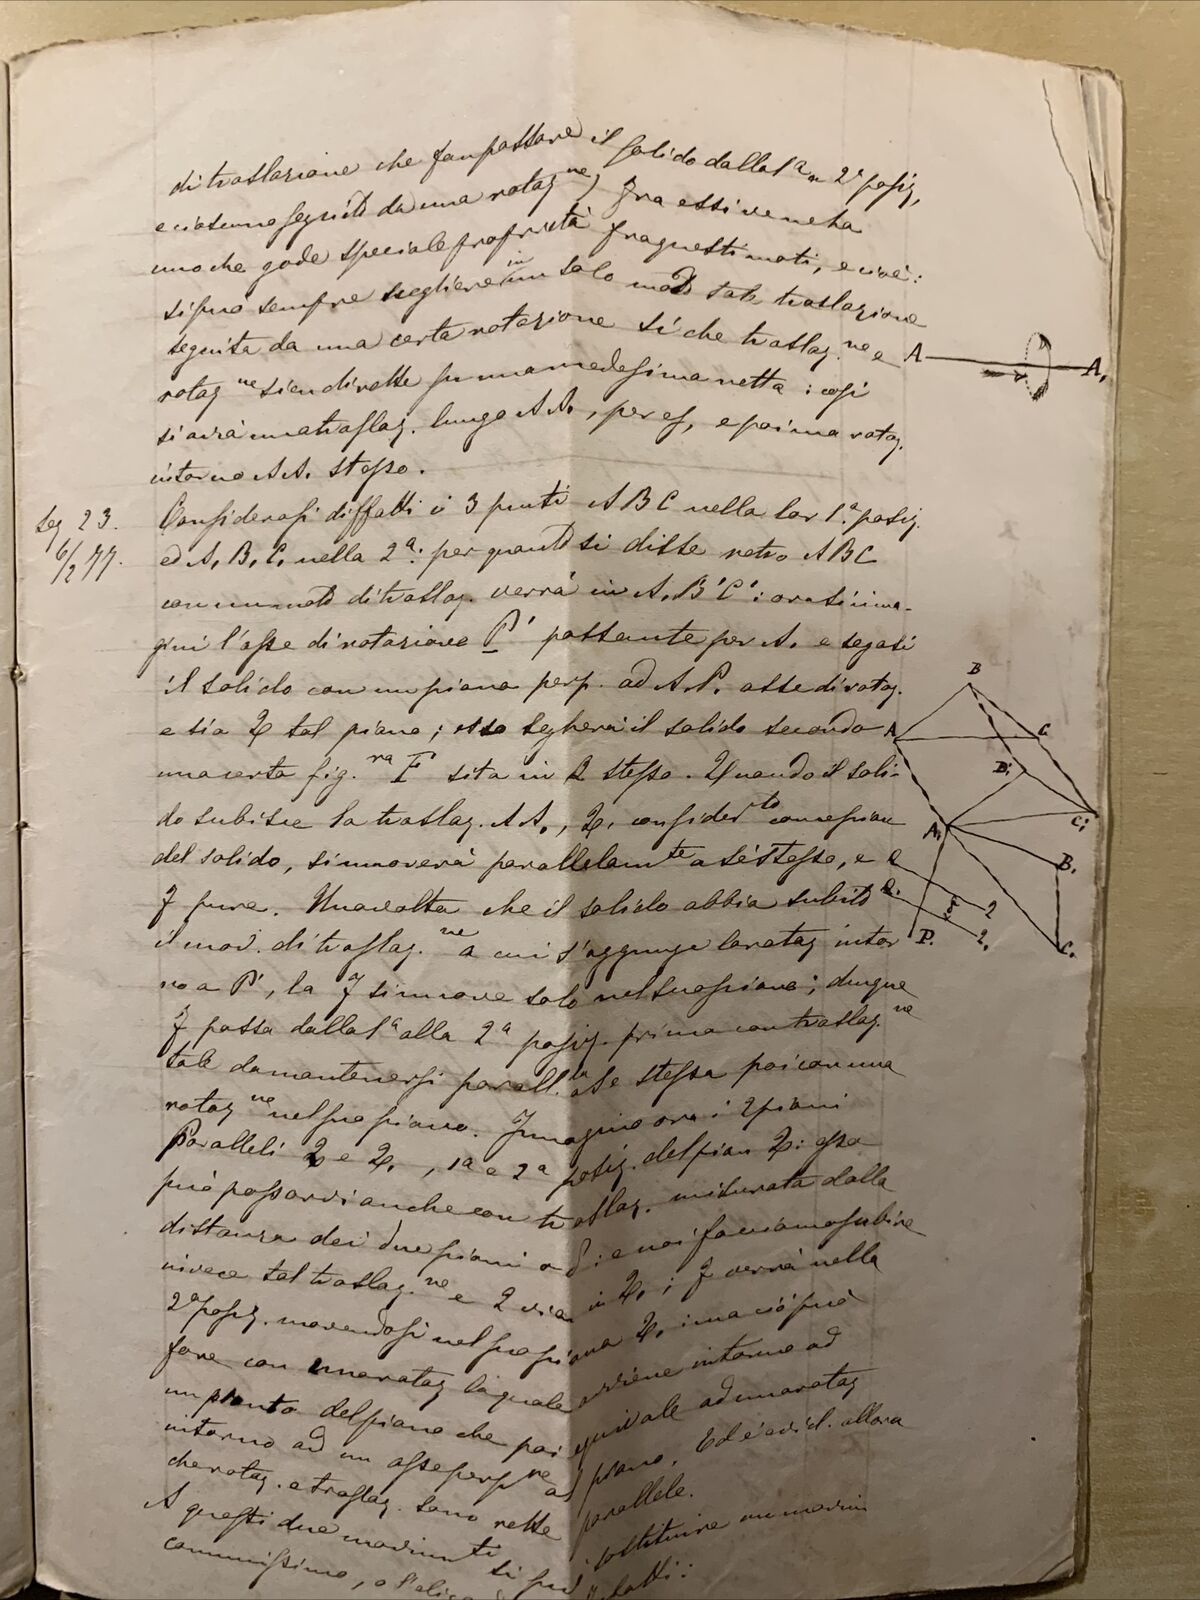 di traslazione che fan passare il solido dalla 1ª a 2ª posiz,
e ciascuno seguìto da una rotaz.ne, fra essi ve ne ha
uno che gode speciale proprietà fra questi moti, e cioè:
si può sempre scegliere in un solo modo tale traslazione
seguita da una certa rotazione sì che traslaz.ne e
rotaz.ne sien dirette su una medesima retta: così
si avrà una traslaz. lungo A A₁, per es, e poi una rotaz.
intorno A A₁ stesso.
A A₁
Seg 23. Considerasi diffatti i 3 punti A B C nella lor 1ª posiz.
6/2 77. ed A₁ B₁ C₁ nella 2ª: per quanto si disse retro A B C
con un moto di traslaz. verrà in A₁ B' C': ora si imma-
gini l'asse di rotazione P' passante per A₁ e segasi
il solido con un piano perp. ad A₁ P₁ asse di rotaz.
e sia Q tal piano; esso segherà il solido secondo
una certa fig.ra F sita in Q stesso. Quando il soli-
do subisce la traslaz. A A₁, Q, consider.to come pian
del solido, si muoverà parallelam.te a sé stesso, e
F pure. Una volta che il solido abbia subito
il mov. di traslaz.ne a cui s'aggiunge la rotaz intor
no a P', la F si muove solo nel suo piano; dunque
F passa dalla 1ª alla 2ª posiz. prima con traslaz.ne
tale da mantenersi parall.la a se stessa poi con una
rotaz.ne nel suo piano. Immagino ora i 2 piani
Paralleli Q e Q₁, 1ª e 2ª posiz. del pian Q: esso
può passarvi anche con traslaz. misurata dalla
distanza dei due piani o d: e noi facciamo subire
invece tal traslaz.ne e Q via in Q₁; F verrà nella
2ª posiz. movendosi nel suo piano Q₁ ; ma ciò può
fare con una rotaz la quale avviene intorno ad
un punto del piano che poi equivale ad una rotaz
intorno ad un asse perp.re al piano. Ed è evid. allora
che rotaz. e traslaz. sono rette parallele.
A questi due movim.ti si può sostituire un movim
comunissimo, o l'elico
B
A C
B₁
A₁ C₁
B₁
Q
Q₁ 2
2₁
P₁ C₁